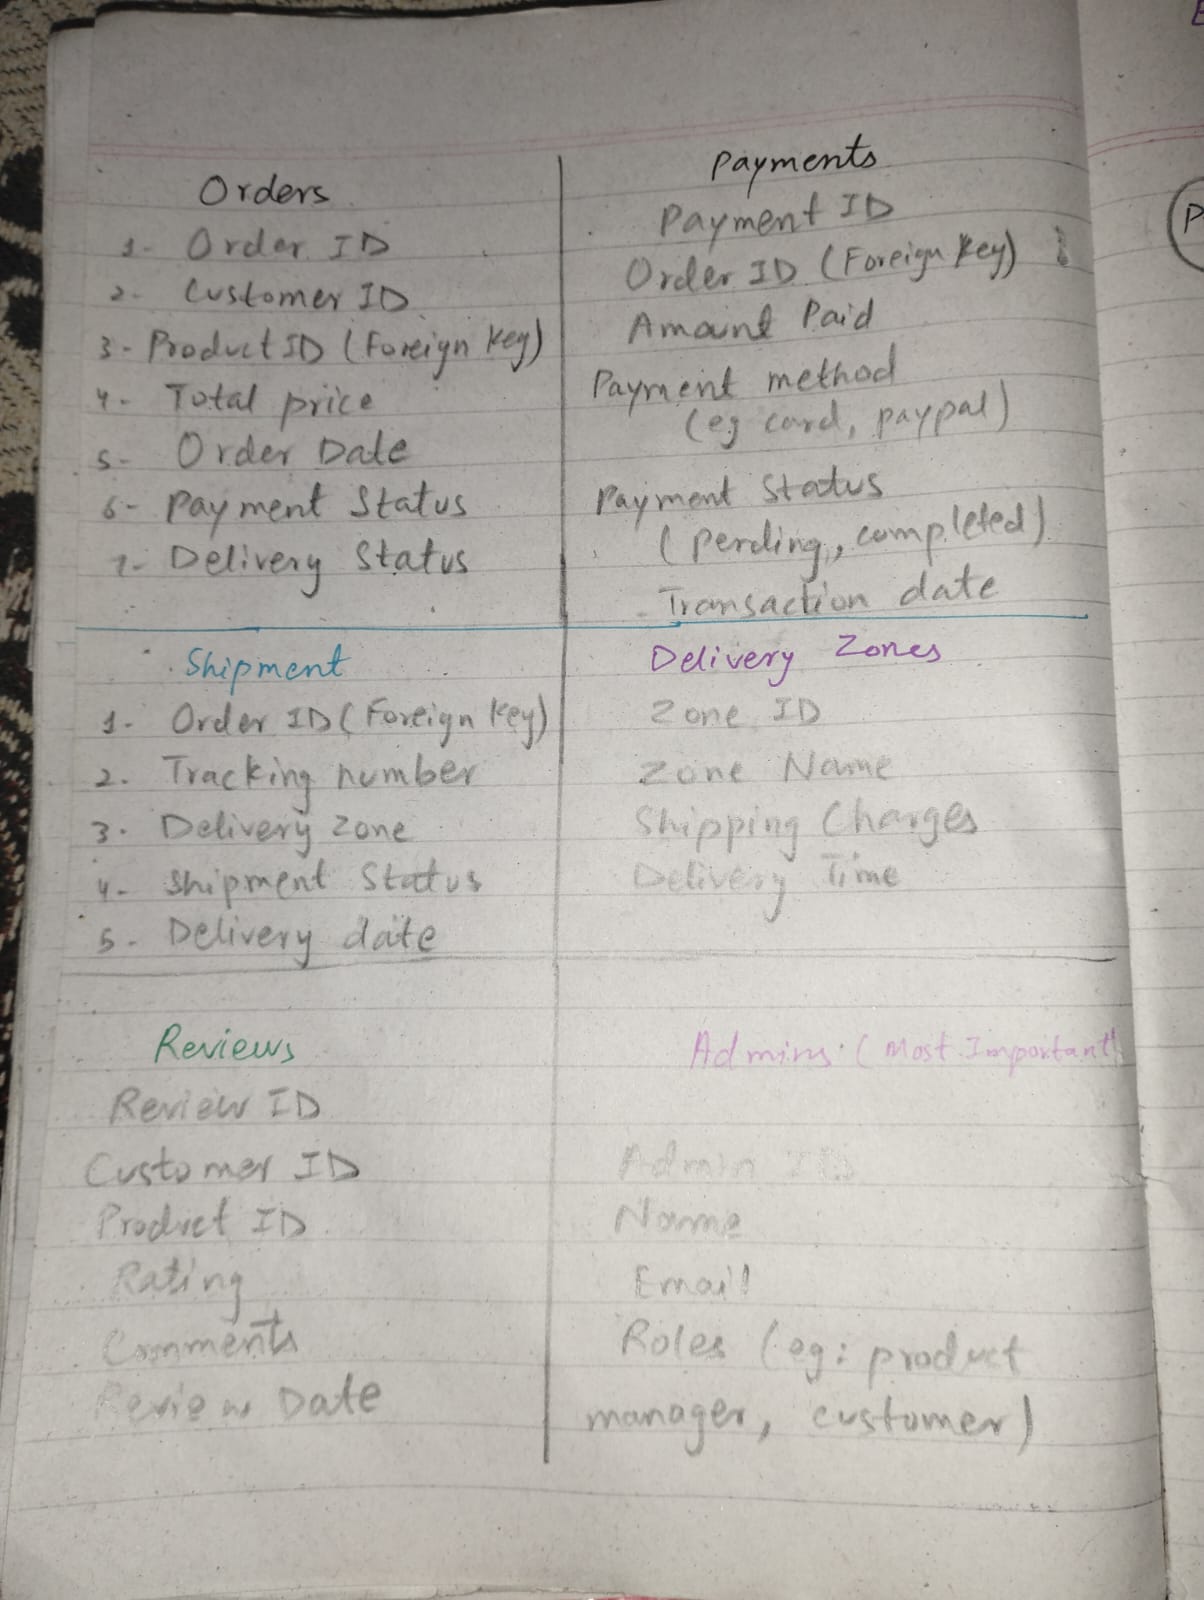 Orders
1- Order ID
2- Customer ID
3- Product ID (Foreign Key)
4- Total price
5- Order Date
6- Payment Status
7- Delivery Status
Payments
Payment ID
Order ID (Foreign Key)
Amount Paid
Payment method
(eg card, paypal)
Payment Status
(pending, completed)
Transaction date
Shipment
1- Order ID (Foreign Key)
2. Tracking number
3. Delivery Zone
4- Shipment Status
5- Delivery date
Delivery Zones
Zone ID
Zone Name
Shipping Charges
Delivery Time
Reviews
Review ID
Customer ID
Product ID
Rating
Comments
Review Date
Admins (Most Important)
Admin ID
Name
Email
Roles (eg: product
manager, customer)